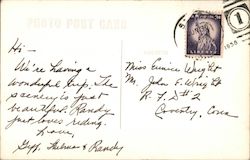 PHOTO POST CARD
Hi -
We're having a
wonderful trip. The
scenery is just
beautiful. Randy
just loves riding.
Love,
Giff, Thelma & Randy
Miss Eunice Wright
M. John F. Wright
R.F.D. #2
Coventry, Conn
1956
1